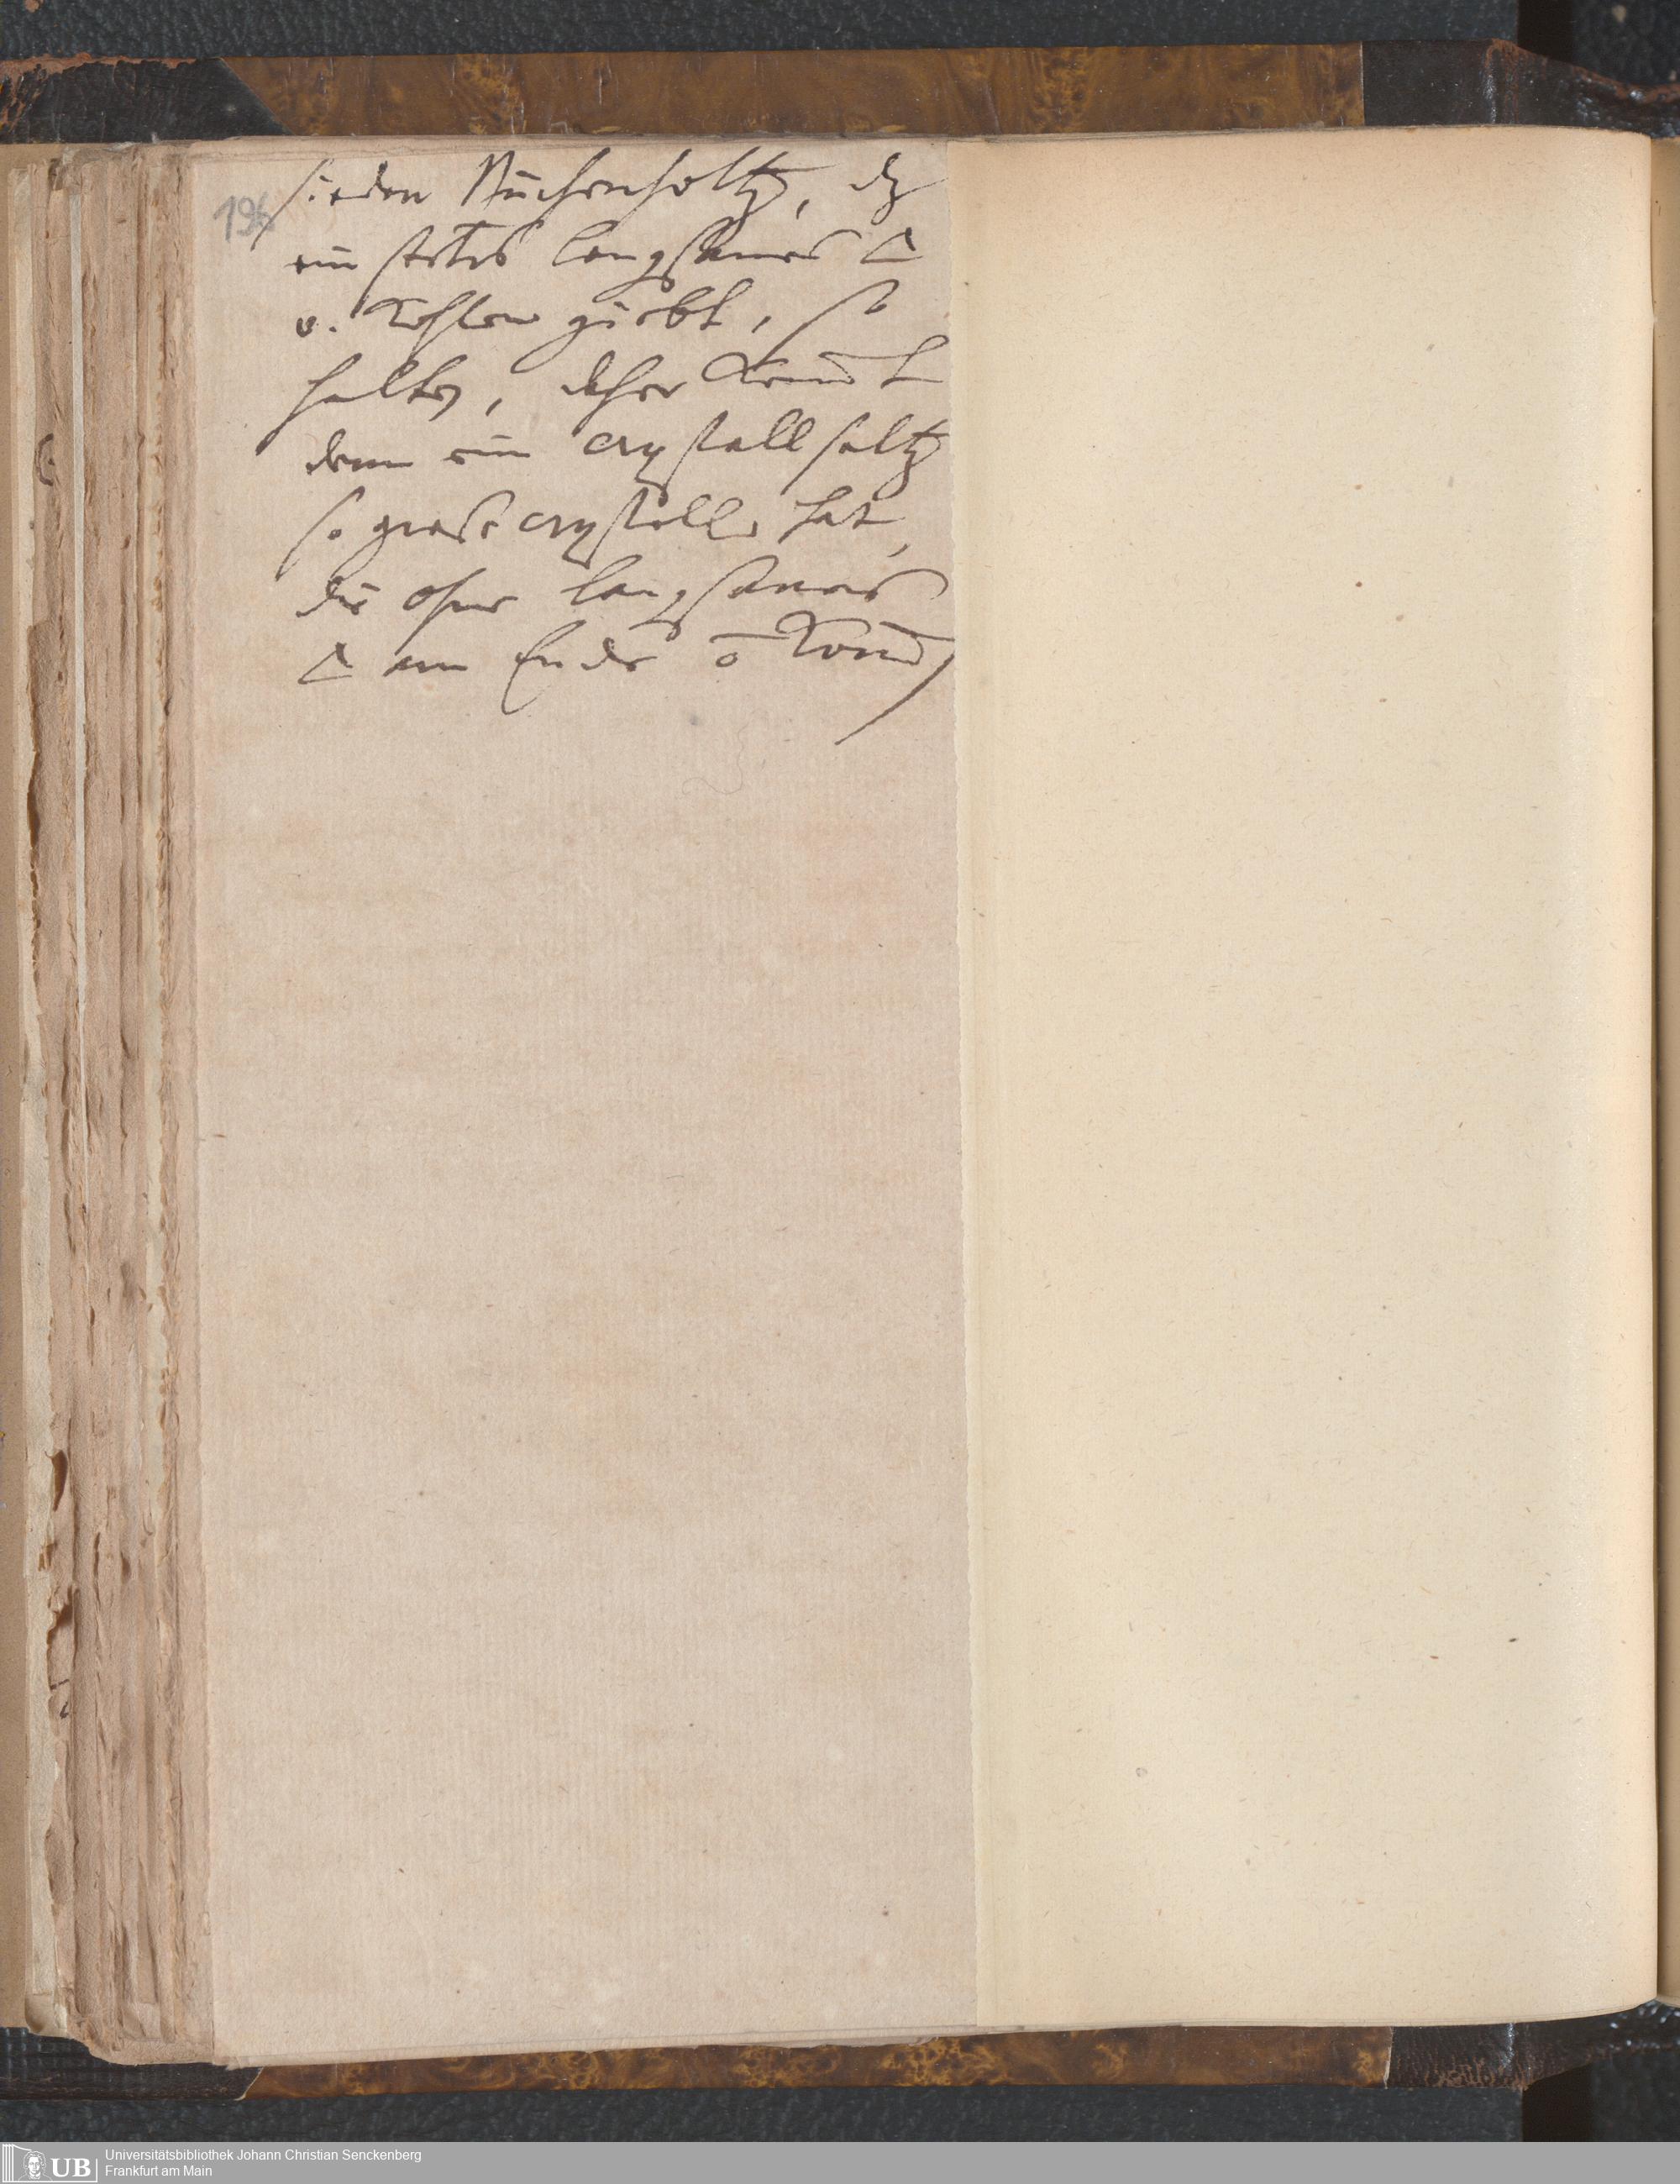 196
sieden Buchenholtz, dz
ein stetes langsames 🜂
v. Kohlen giebt, so
halten, daher kom̄t
denn ein crystall saltz
so große crystallen hat,
die ohne langsames
🜂 am Ende ō kom̄en
UB Universitätsbibliothek Johann Christian Senckenberg
Frankfurt am Main